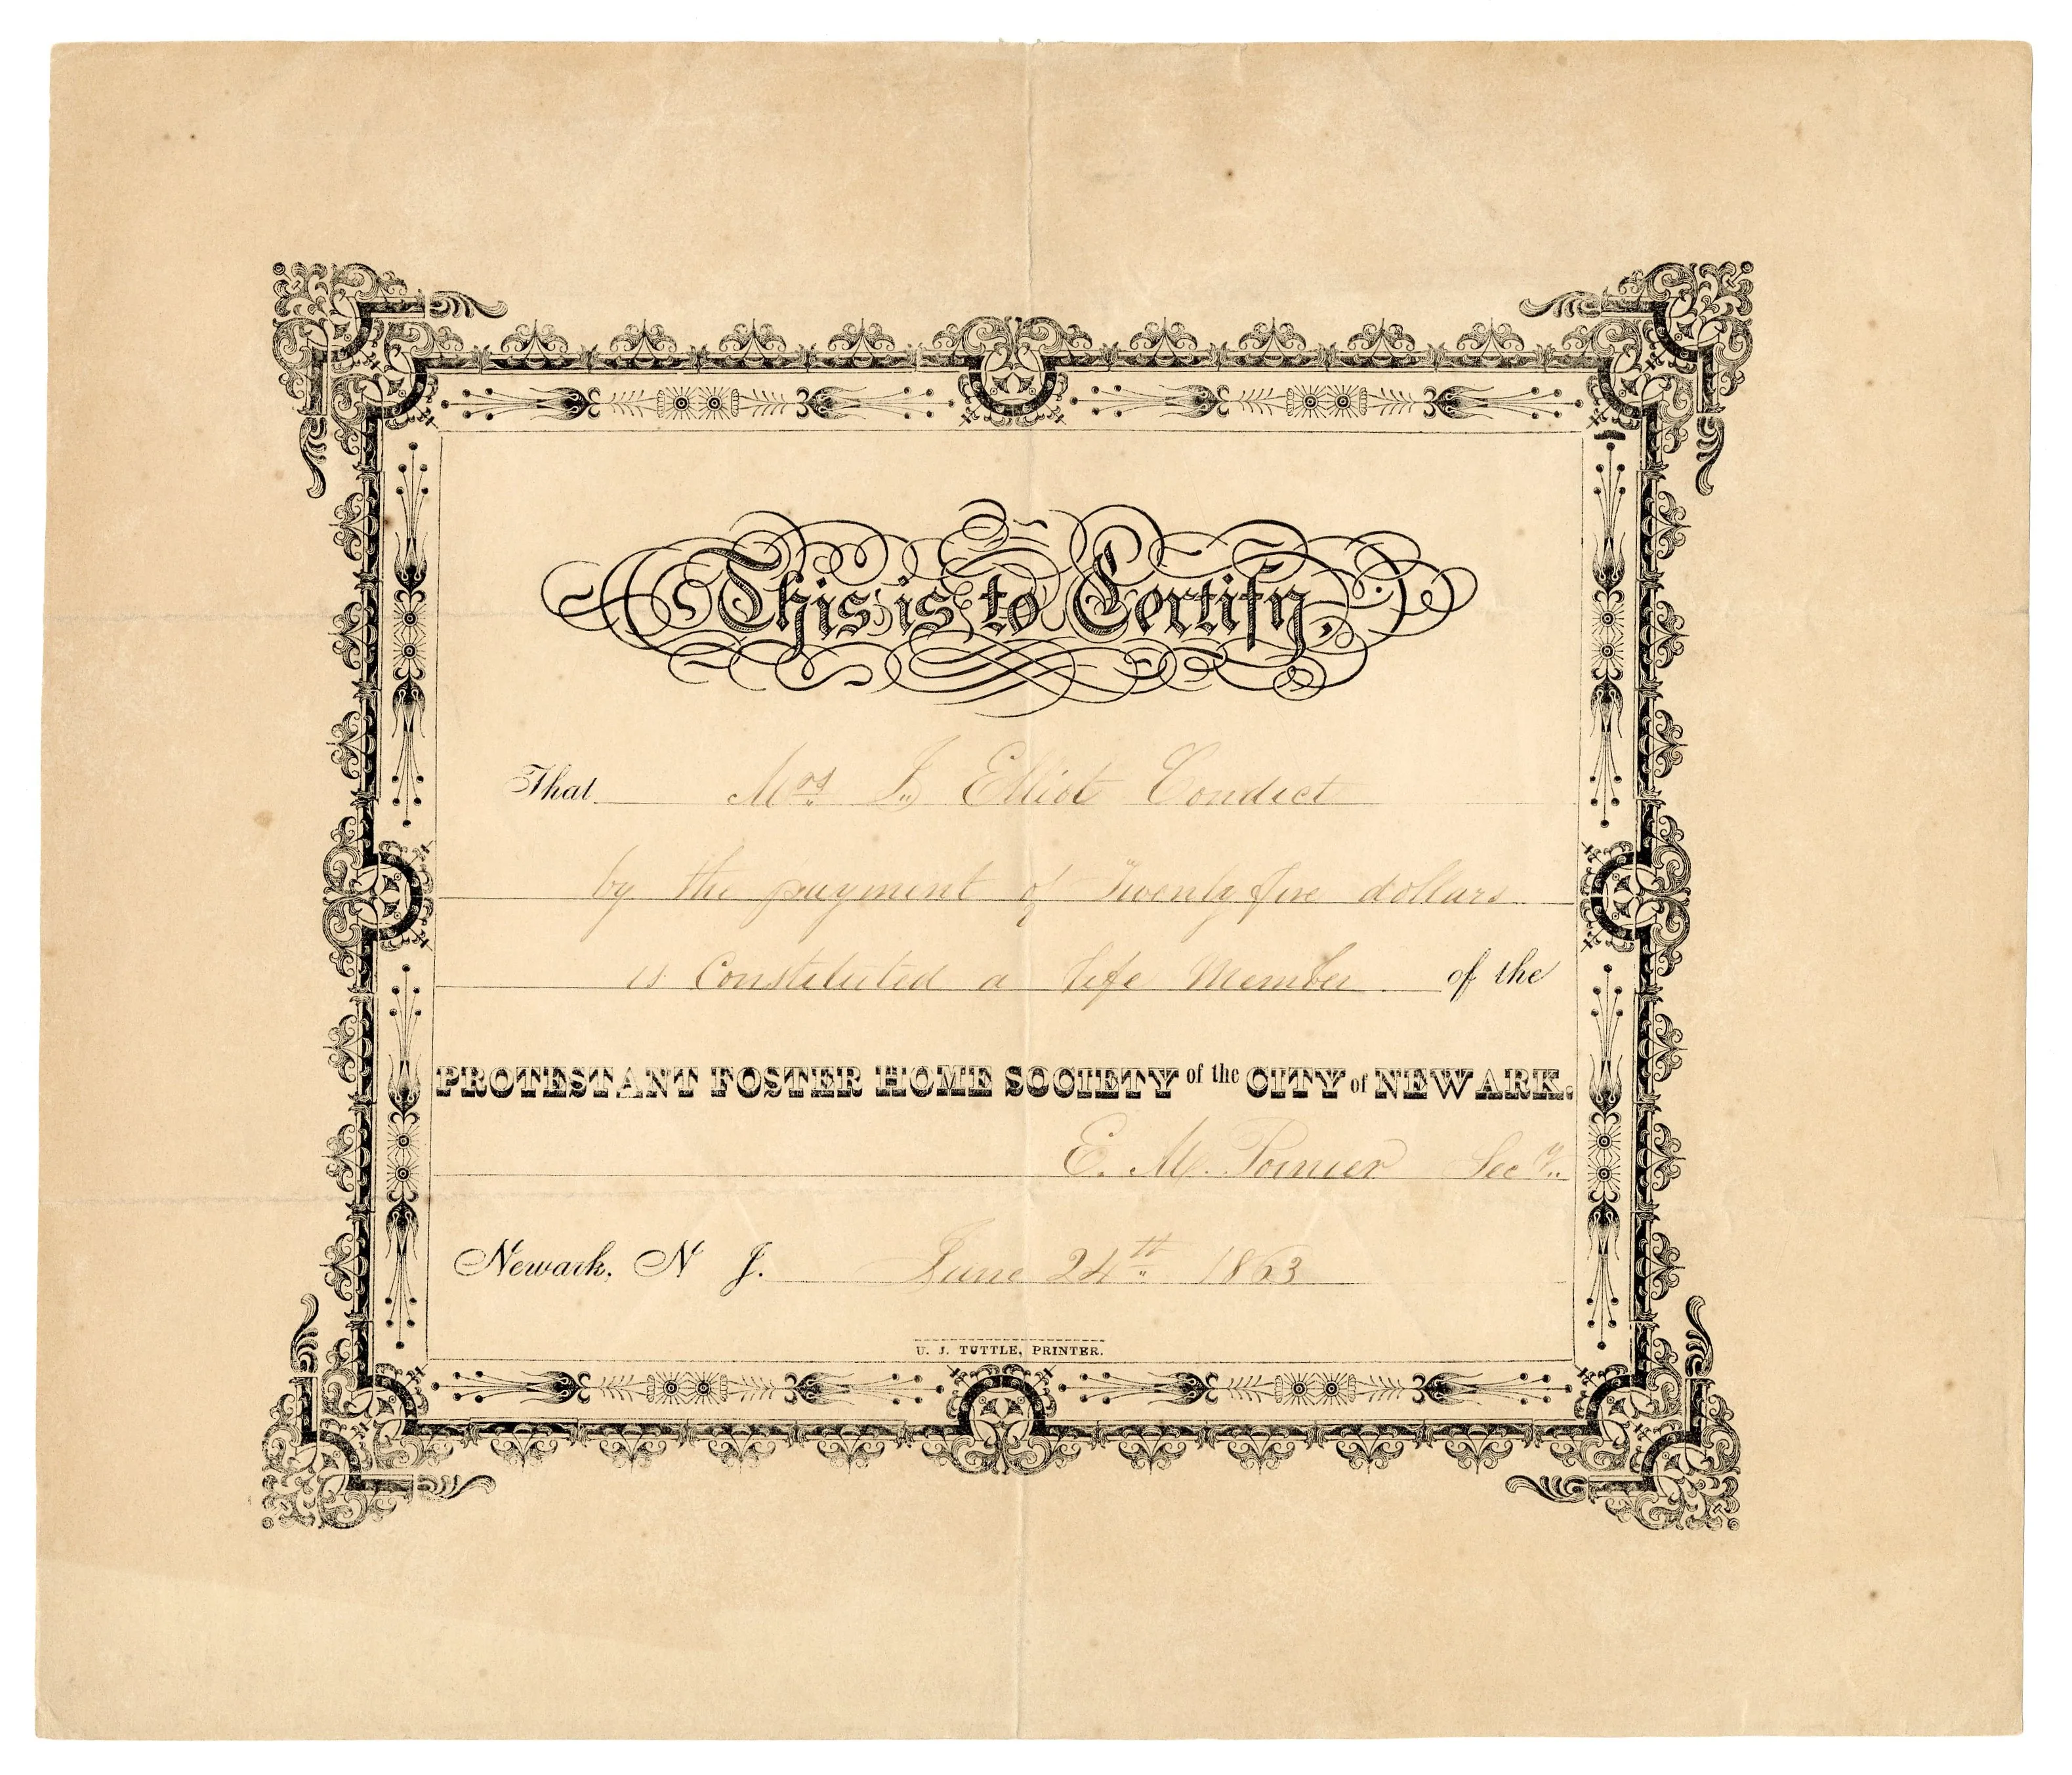 This is to Certify,
That Mrs J. Elliot Condict
by the payment of Twenty five dollars
is Constituted a life Member of the
PROTESTANT FOSTER HOME SOCIETY of the CITY of NEWARK.
E. M. Poinier Secy.
Newark, N J. June 24th 1863
U. J. TUTTLE, PRINTER.